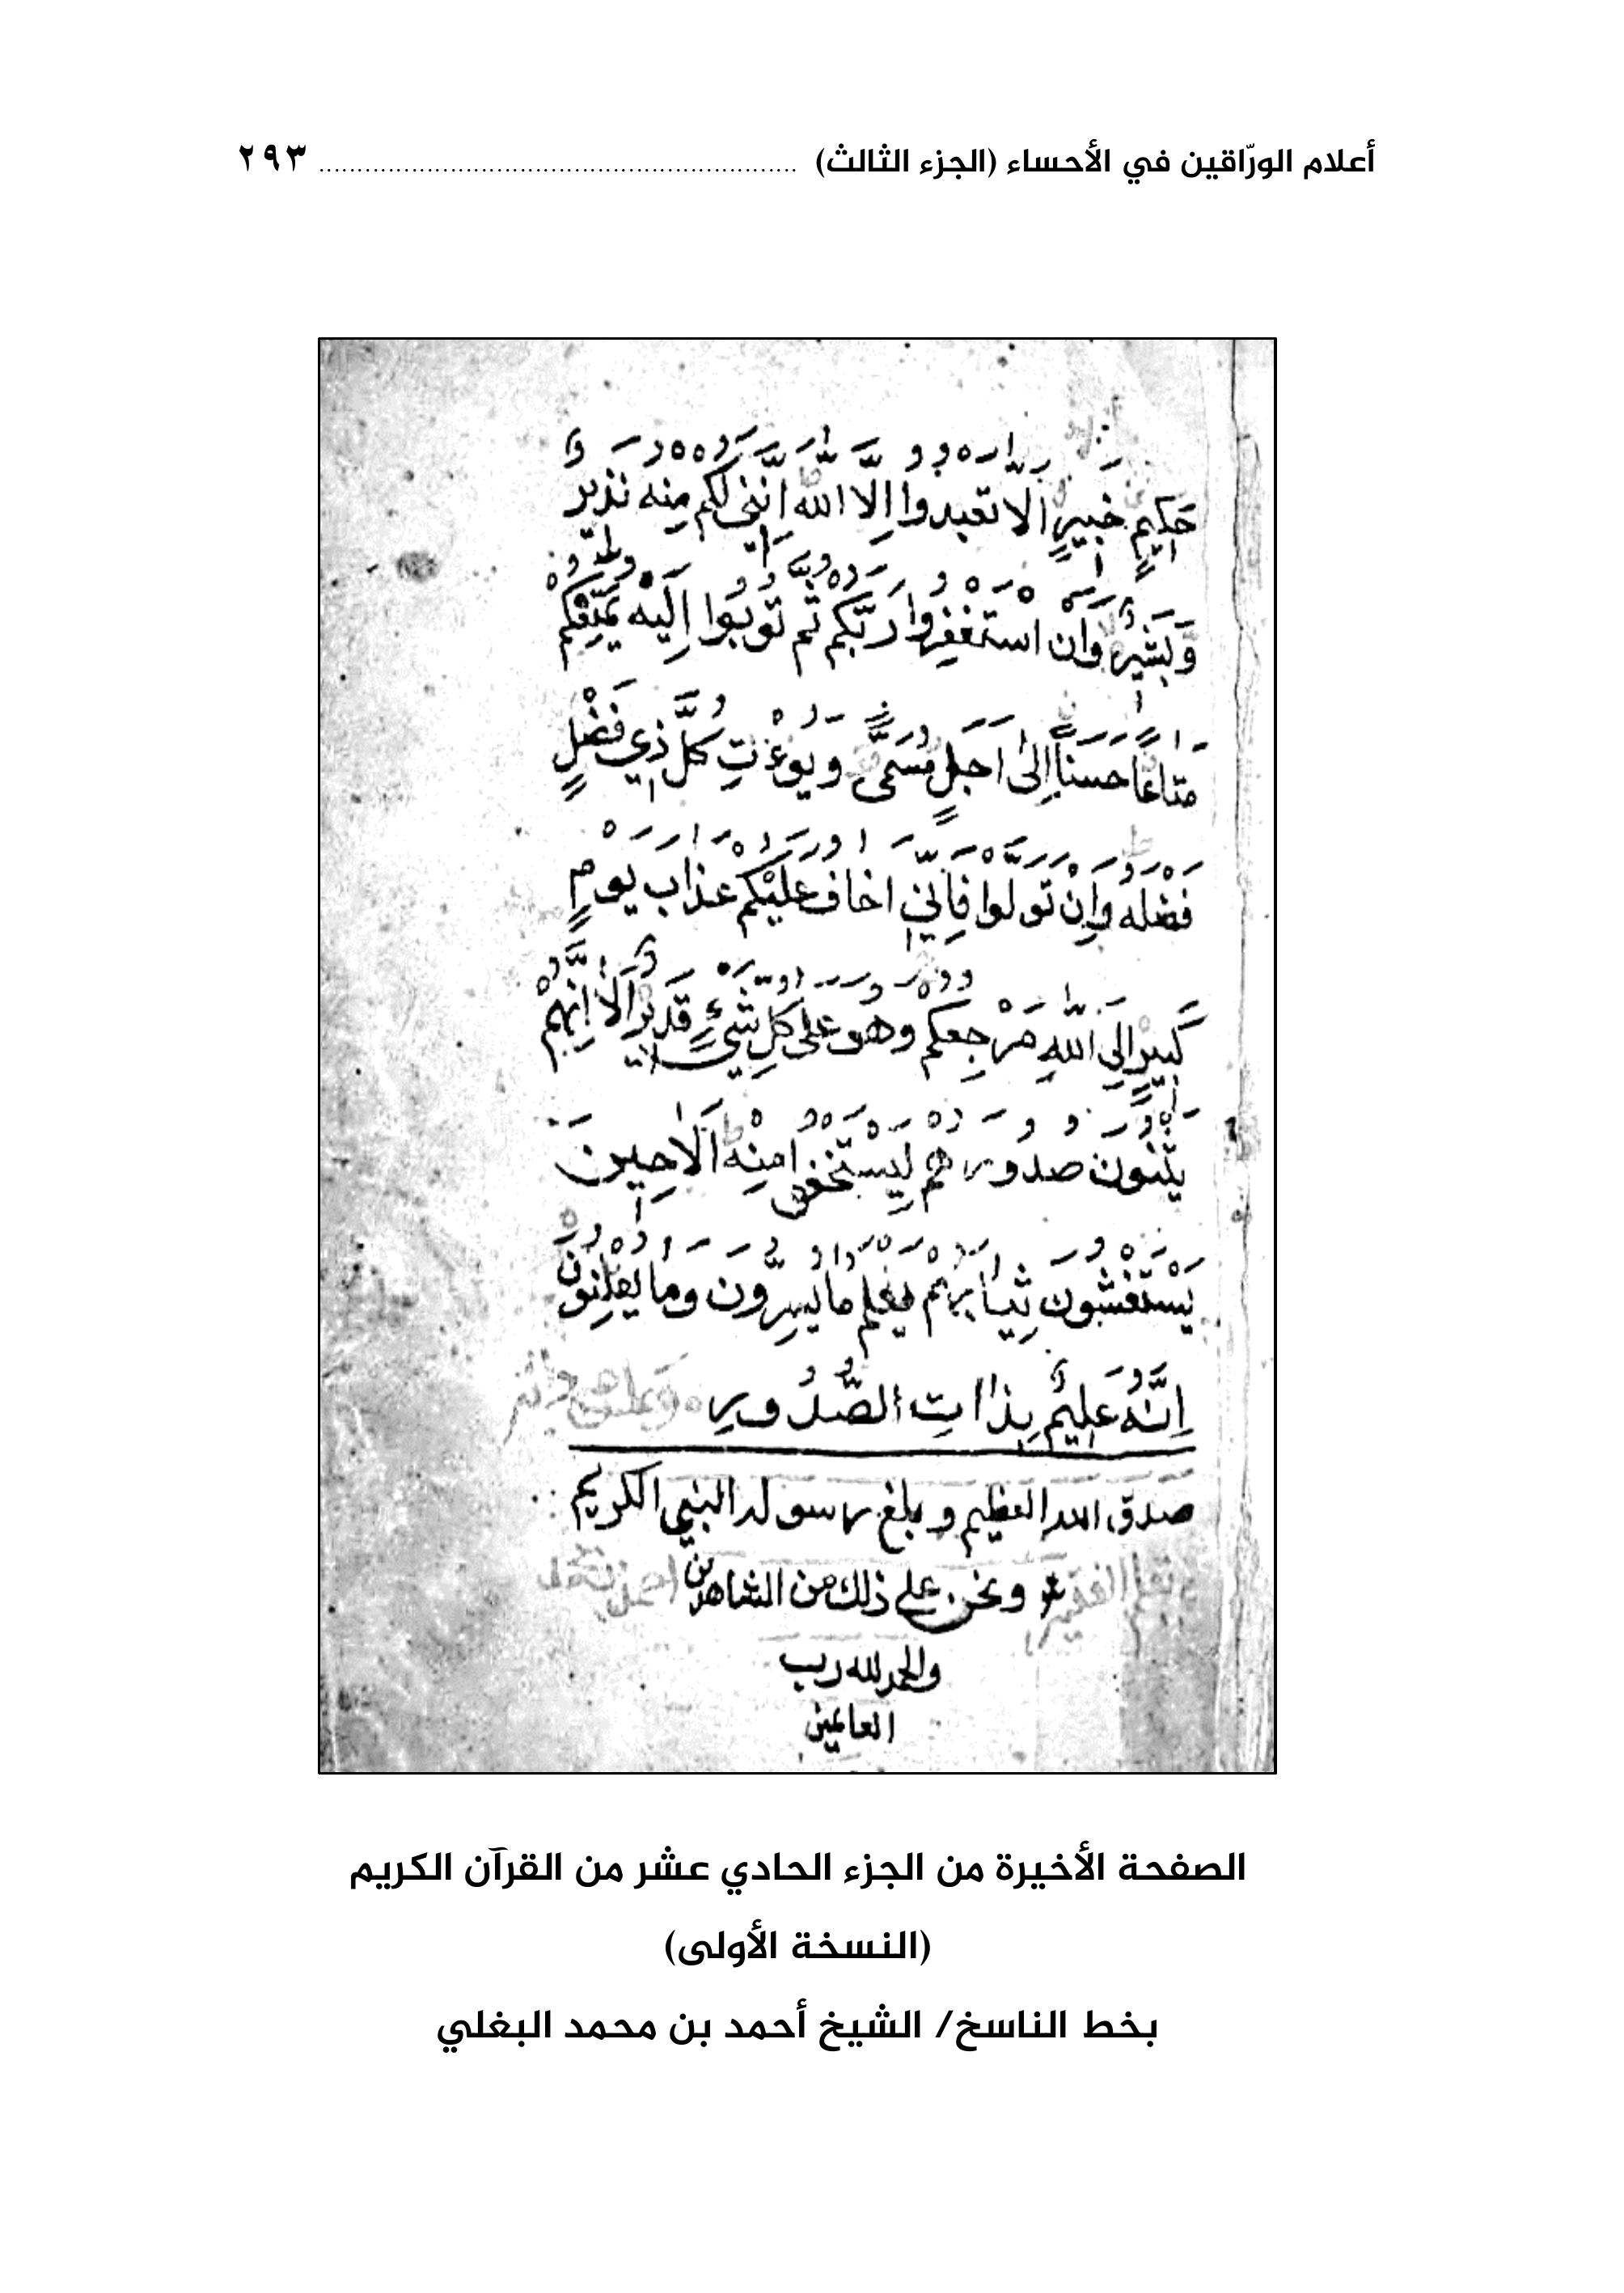 أعلام الورّاقين في الأحساء (الجزء الثالث) ................................................................ ٢٩٣
حَكِيمٍ خَبِيرٍ الا تعبدوا اِلا اللهَ اِنَّنِي لكم مِنه نَذِيرٌ
وَّبَشِيرٌ وَاَنِ اسْتَغْفِرُوا رَبَّكُم ثم تُوبُوا اِلَيْه يُمَتِّعْكُم
مَتاعاً حَسَناً اِلىٰ اَجَلٍ مُسَمًّى وَيُوءْتِ كُلَّ ذِي فَضْلٍ
فَضْلَهُ وَاِنْ تَوَلَّوْا فَاِنِّي اخافُ عَلَيْكُمْ عَذابَ يَوْمٍ
كَبِيرٍ اِلَى اللهِ مَرْجِعُكُم وَهُوَ عَلىٰ كُلِّ شَيْءٍ قَدِيرٌ اَلا اِنَّهُمْ
يَثْنُونَ صُدُورَهُم لِيَسْتَخْفُوا مِنْهُ اَلا حِينَ
يَسْتَغْشُونَ ثِيَابَهُمْ يَعْلَمُ ما يُسِرُّونَ وَما يُعْلِنُونَ
اِنَّهُ عَلِيمٌ بِذاتِ الصُّدُورِ
صدق الله العظيم وبلغ رسوله النبي الكريم
ونحن على ذلك من الشاهدين
والحمد لله رب
العالمين
الصفحة الأخيرة من الجزء الحادي عشر من القرآن الكريم
(النسخة الأولى)
بخط الناسخ/ الشيخ أحمد بن محمد البغلي